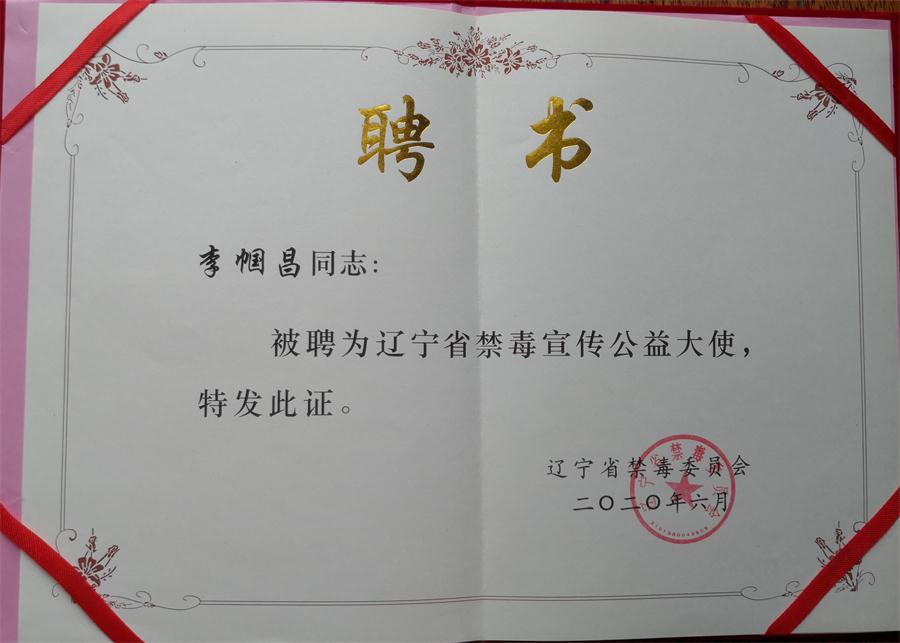 聘书
李帼昌同志：
被聘为辽宁省禁毒宣传公益大使，
特发此证。
辽宁省禁毒委员会
二〇二〇年六月
辽宁省禁毒委员会